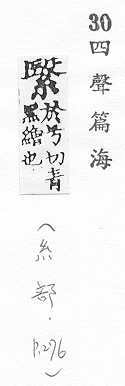 30四聲篇海
繄
於兮切青
黑繒也
(糸部.P.276)